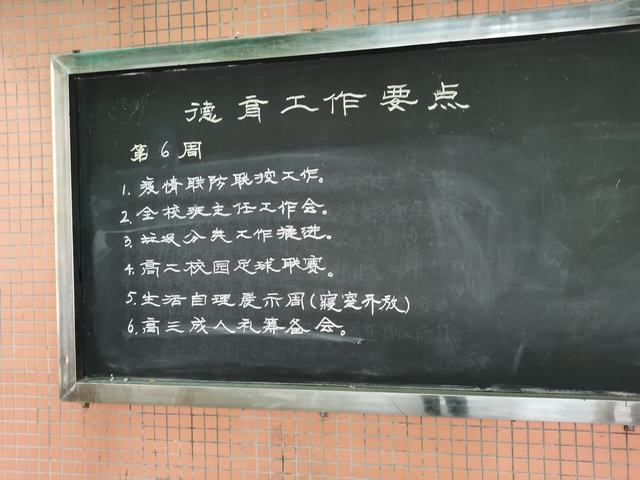 德育工作要点
第6周
1.疫情联防联控工作。
2.全校班主任工作会。
3.垃圾分类工作推进。
4.高二校园足球联赛。
5.生活自理展示周(寝室开放)
6.高三成人礼筹备会。